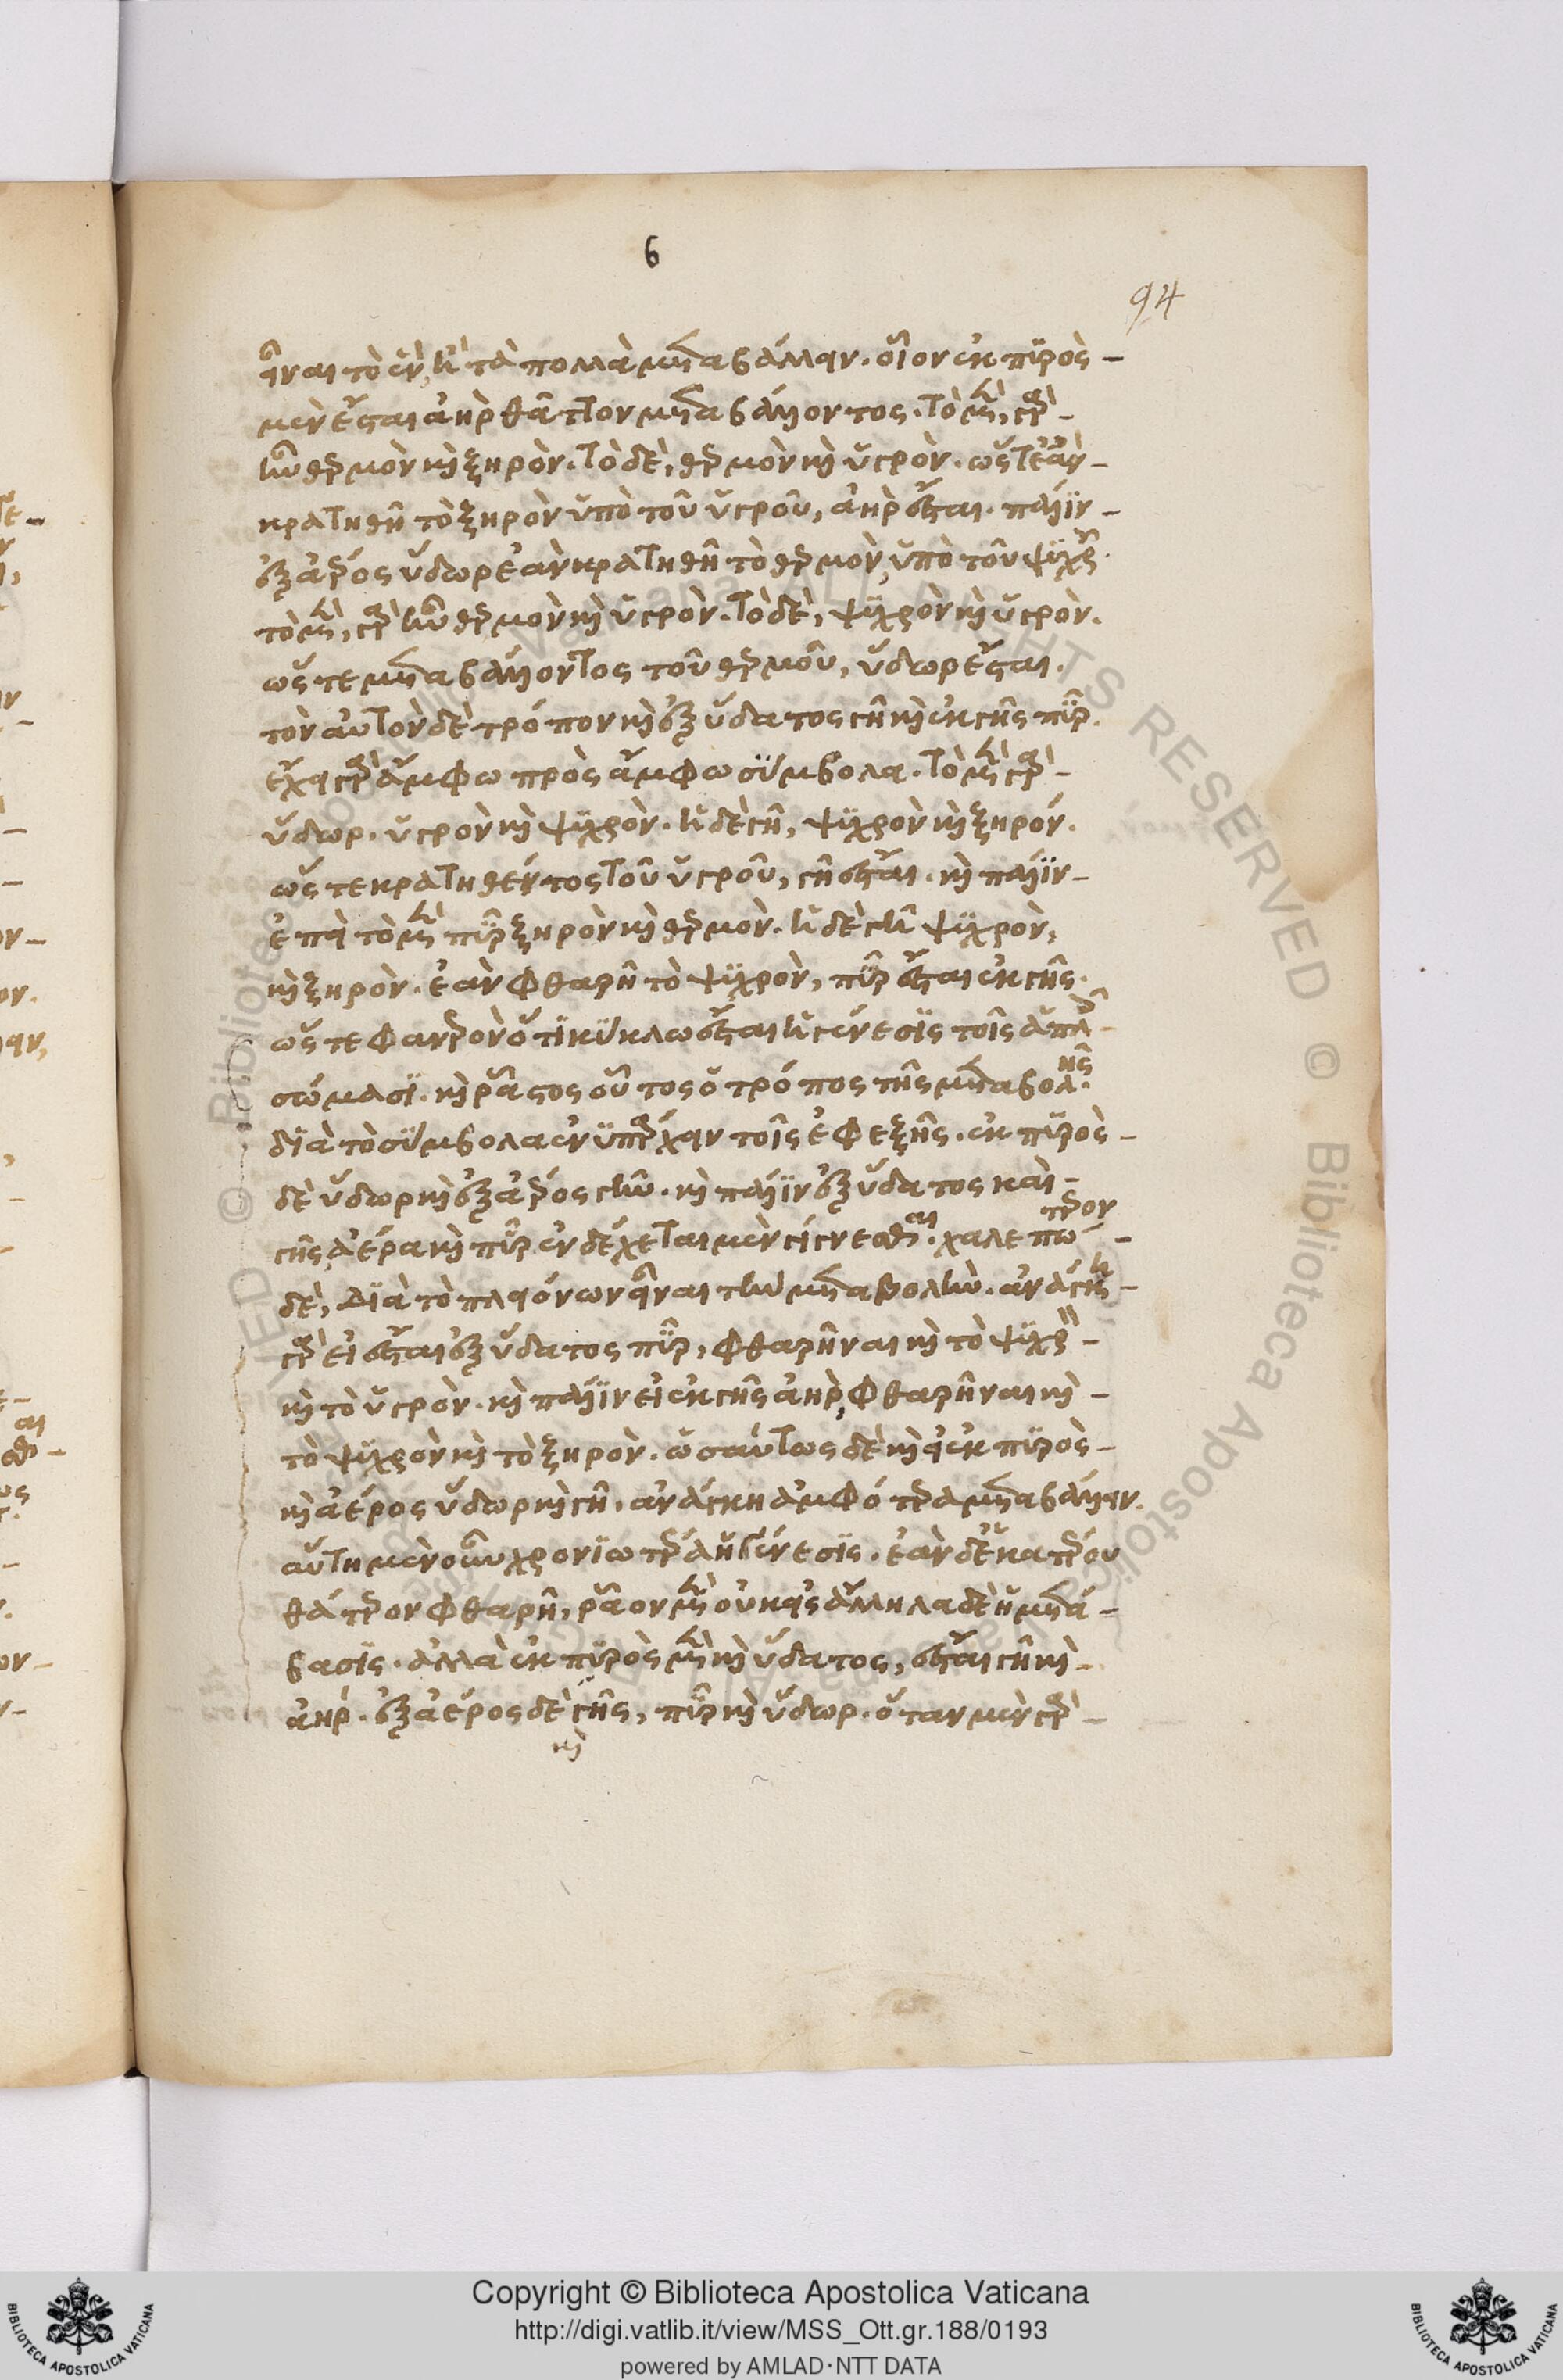 6
94
εἶναι τὸ ἓν ἢ τὰ πολλὰ μεταβάλλειν. οἷον ἐκ πυρὸς
μὲν ἔσται ἀὴρ θατέρου μεταβάλλοντος. τὸ μὲν γὰρ
ἦν θερμὸν καὶ ξηρὸν. τὸ δὲ, θερμὸν καὶ ὑγρὸν. ὥστε ἐὰν
κρατηθῇ τὸ ξηρὸν ὑπὸ τοῦ ὑγροῦ, ἀὴρ ἔσται. πάλιν
ἐξ ἀέρος ὕδωρ ἐὰν κρατηθῇ τὸ θερμὸν, ὑπὸ τοῦ ψυχροῦ.
τὸ μὲν, γὰρ ἦν θερμὸν καὶ ὑγρὸν. τὸ δὲ, ψυχρὸν καὶ ὑγρὸν.
ὥστε μεταβάλλοντος τοῦ θερμοῦ, ὕδωρ ἔσται.
τὸν αὐτὸν δὲ τρόπον καὶ ἐξ ὕδατος γῆ καὶ ἐκ γῆς πῦρ.
ἔχει γὰρ ἄμφω πρὸς ἄμφω σύμβολα. τὸ μὲν γὰρ
ὕδωρ. ὑγρὸν καὶ ψυχρὸν. ἡ δὲ γῆ, ψυχρὸν καὶ ξηρόν.
ὥστε κρατηθέντος τοῦ ὑγροῦ, γῆ ἔσται. καὶ πάλιν
ἐπεὶ τὸ μὲν πῦρ ξηρὸν καὶ θερμὸν. ἡ δὲ γῆ ψυχρὸν,
καὶ ξηρὸν. ἐὰν φθαρῇ τὸ ψυχρὸν, πῦρ ἔσται ἐκ γῆς.
ὥστε φανερὸν ὅτι κύκλω ἔσται ἡ γένεσις τοῖς ἁπλοῖς
σώμασι. καὶ ρᾶστος οὗτος ὁ τρόπος τῆς μεταβολῆς.
διὰ τὸ σύμβολα ἐνυπάρχειν τοῖς ἐφεξῆς. ἐκ πυρὸς
δὲ ὕδωρ καὶ ἐξ ἀέρος γῆν. καὶ πάλιν ἐξ ὕδατος καὶ
γῆς, ἀέρα καὶ πῦρ ἐνδέχεται μὲν γίγνεσθαι. χαλεπώτερον
δὲ, διὰ τὸ πλειόνων εἶναι τὴν μεταβολὴν. ἀνάγκη
γὰρ εἰ ἔσται ἐξ ὕδατος πῦρ, φθαρῆναι καὶ τὸ ψυχρὸν
καὶ τὸ ὑγρὸν. καὶ πάλιν εἰ ἐκ γῆς ἀὴρ, φθαρῆναι καὶ
τὸ ψυχρὸν καὶ τὸ ξηρὸν. ὡσαύτως δὲ καὶ εἰ ἐκ πυρὸς
καὶ ἀέρος ὕδωρ καὶ γῆ. ἀνάγκη ἀμφότερα μεταβάλλειν.
αὕτη μὲν οὖν χρονιωτέρα ἡ γένεσις. ἐὰν δ' ἑκατέρου
θάτερον φθαρῇ, ρᾶον μὲν οὐκ εἰς ἄλληλα δὲ ἡ μετά
βασις. ἀλλὰ ἐκ πυρὸς μὲν καὶ ὕδατος, ἔσται γῆ καὶ
ἀὴρ. ἐξ ἀέρος δὲ γῆς, πῦρ καὶ ὕδωρ. ὅταν μὲν γὰρ
καὶ
Copyright © Biblioteca Apostolica Vaticana
http://digi.vatlib.it/view/MSS_Ott.gr.188/0193
powered by AMLAD·NTT DATA